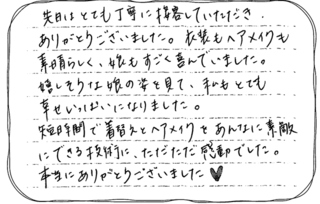 先日はとても丁寧に接客していただき、
ありがとうございました。衣装もヘアメイクも
素晴らしく、娘もすごく喜んでいました。
嬉しそうな娘の姿を見て、私もとても
幸せいっぱいになりました。
短時間で着替えとヘアメイクをあんなに素敵
にできる技術に、ただただ感動でした。
本当にありがとうございました♥